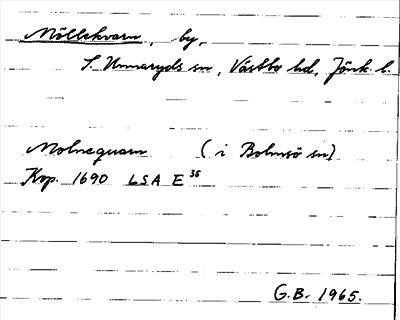 Möllekvarn, by,
S. Unnaryds sn, Västbo hd, Jönk. l.
Molnequarn (i Bolmsö sn)
Kop. 1690 LSA E 36
G.B. 1965.